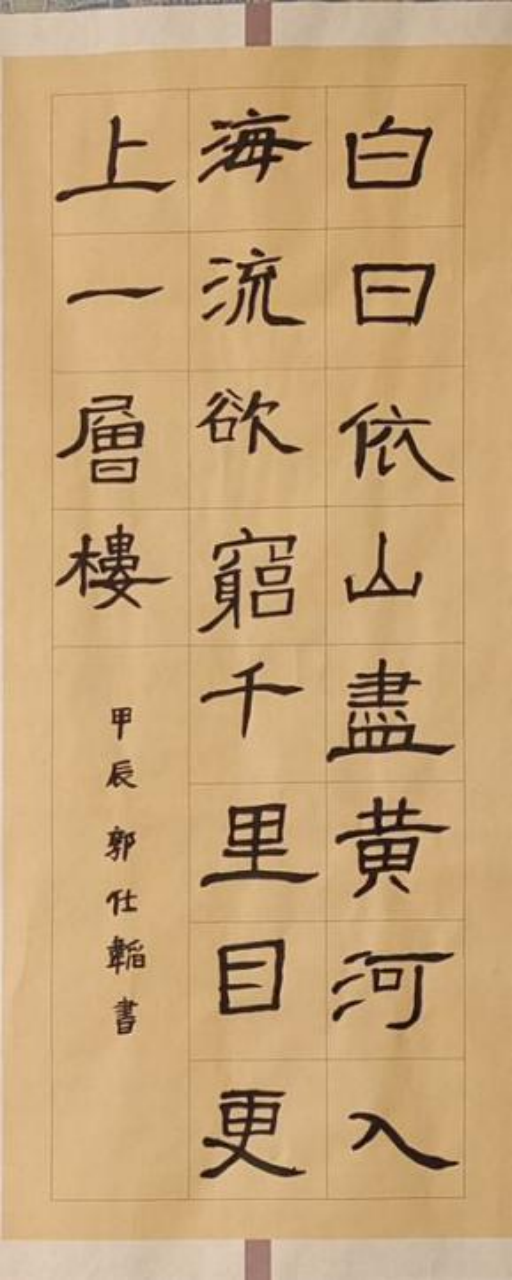 白日依山盡黄河入
海流欲窮千里目更
上一層樓
甲辰 郭仕韜書